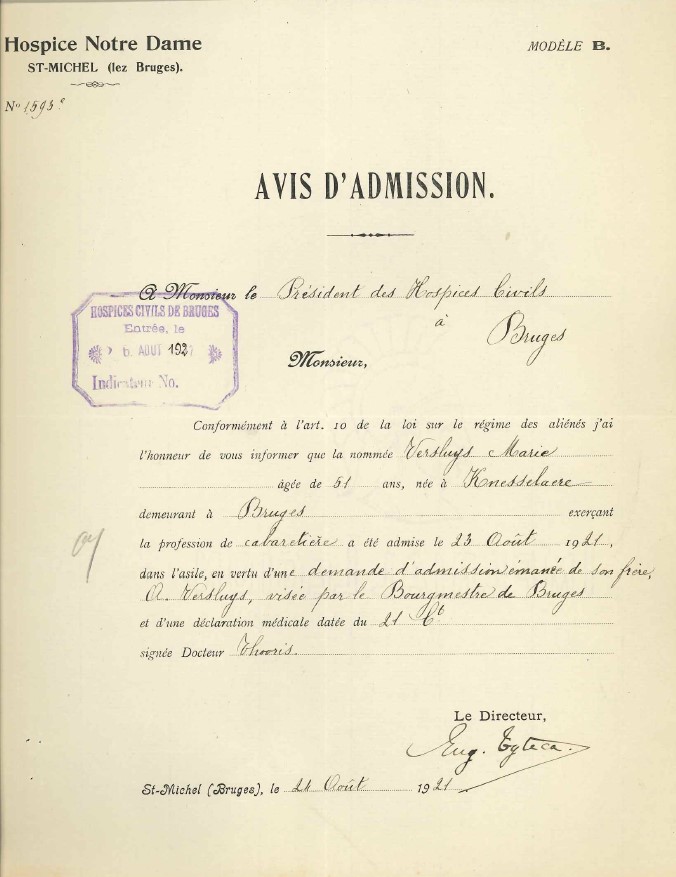 Hospice Notre Dame
ST-MICHEL (lez Bruges).
MODÈLE B.
No 1593e
AVIS D'ADMISSION.
A Monsieur le Président des Hospices Civils
à Bruges
HOSPICES CIVILS DE BRUGES
Entrée, le
AOUT 192
Indicateur No.
Monsieur,
Conformément à l'art. 10 de la loi sur le régime des aliénés j'ai
l'honneur de vous informer que la nommée Versluys Marie
âgée de 51 ans, née à Knesselaere
demeurant à Bruges exerçant
la profession de cabaretière a été admise le 23 Août 1921,
dans l'asile, en vertu d'une demande d'admission émanée de son frère,
A. Versluys, visée par le Bourgmestre de Bruges
et d'une déclaration médicale datée du 21 Ct
signée Docteur Thooris.
Le Directeur,
Eug. Tyteca.
St-Michel (Bruges), le 24 Août 1921